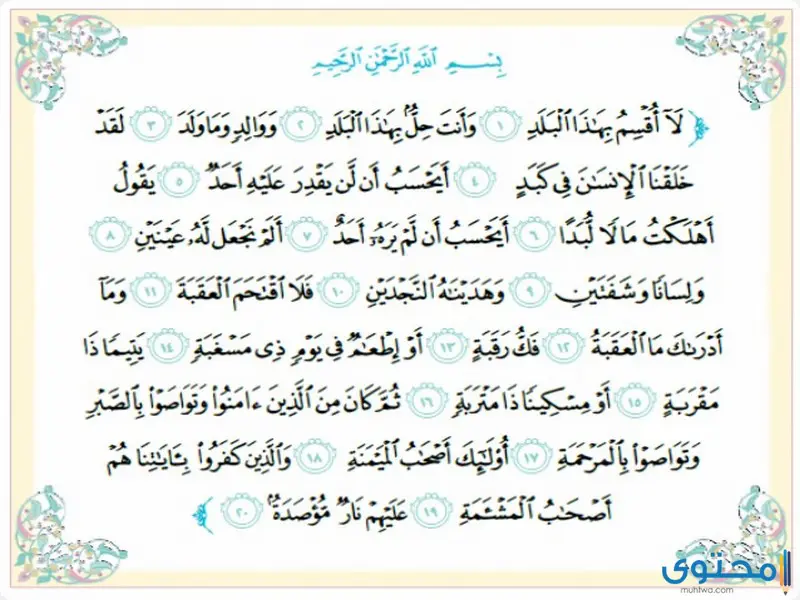 بِسْمِ اللَّهِ الرَّحْمَٰنِ الرَّحِيمِ
لَآ أُقْسِمُ بِهَٰذَا ٱلْبَلَدِ ١ وَأَنتَ حِلٌّۢ بِهَٰذَا ٱلْبَلَدِ ٢ وَوَالِدٍ وَمَا وَلَدَ ٣ لَقَدْ
خَلَقْنَا ٱلْإِنسَٰنَ فِى كَبَدٍ ٤ أَيَحْسَبُ أَن لَّن يَقْدِرَ عَلَيْهِ أَحَدٌ ٥ يَقُولُ
أَهْلَكْتُ مَالًا لُّبَدًا ٦ أَيَحْسَبُ أَن لَّمْ يَرَهُۥٓ أَحَدٌ ٧ أَلَمْ نَجْعَل لَّهُۥ عَيْنَيْنِ ٨
وَلِسَانًا وَشَفَتَيْنِ ٩ وَهَدَيْنَٰهُ ٱلنَّجْدَيْنِ ١٠ فَلَا ٱقْتَحَمَ ٱلْعَقَبَةَ ١١ وَمَآ
أَدْرَىٰكَ مَا ٱلْعَقَبَةُ ١٢ فَكُّ رَقَبَةٍ ١٣ أَوْ إِطْعَٰمٌ فِى يَوْمٍ ذِى مَسْغَبَةٍ ١٤ يَتِيمًا ذَا
مَقْرَبَةٍ ١٥ أَوْ مِسْكِينًا ذَا مَتْرَبَةٍ ١٦ ثُمَّ كَانَ مِنَ ٱلَّذِينَ ءَامَنُوا۟ وَتَوَاصَوْا۟ بِٱلصَّبْرِ
وَتَوَاصَوْا۟ بِٱلْمَرْحَمَةِ ١٧ أُو۟لَٰٓئِكَ أَصْحَٰبُ ٱلْمَيْمَنَةِ ١٨ وَٱلَّذِينَ كَفَرُوا۟ بِـَٔايَٰتِنَا هُمْ
أَصْحَٰبُ ٱلْمَشْـَٔمَةِ ١٩ عَلَيْهِمْ نَارٌ مُّؤْصَدَةٌۢ ٢٠
محتوى
muhtwa.com